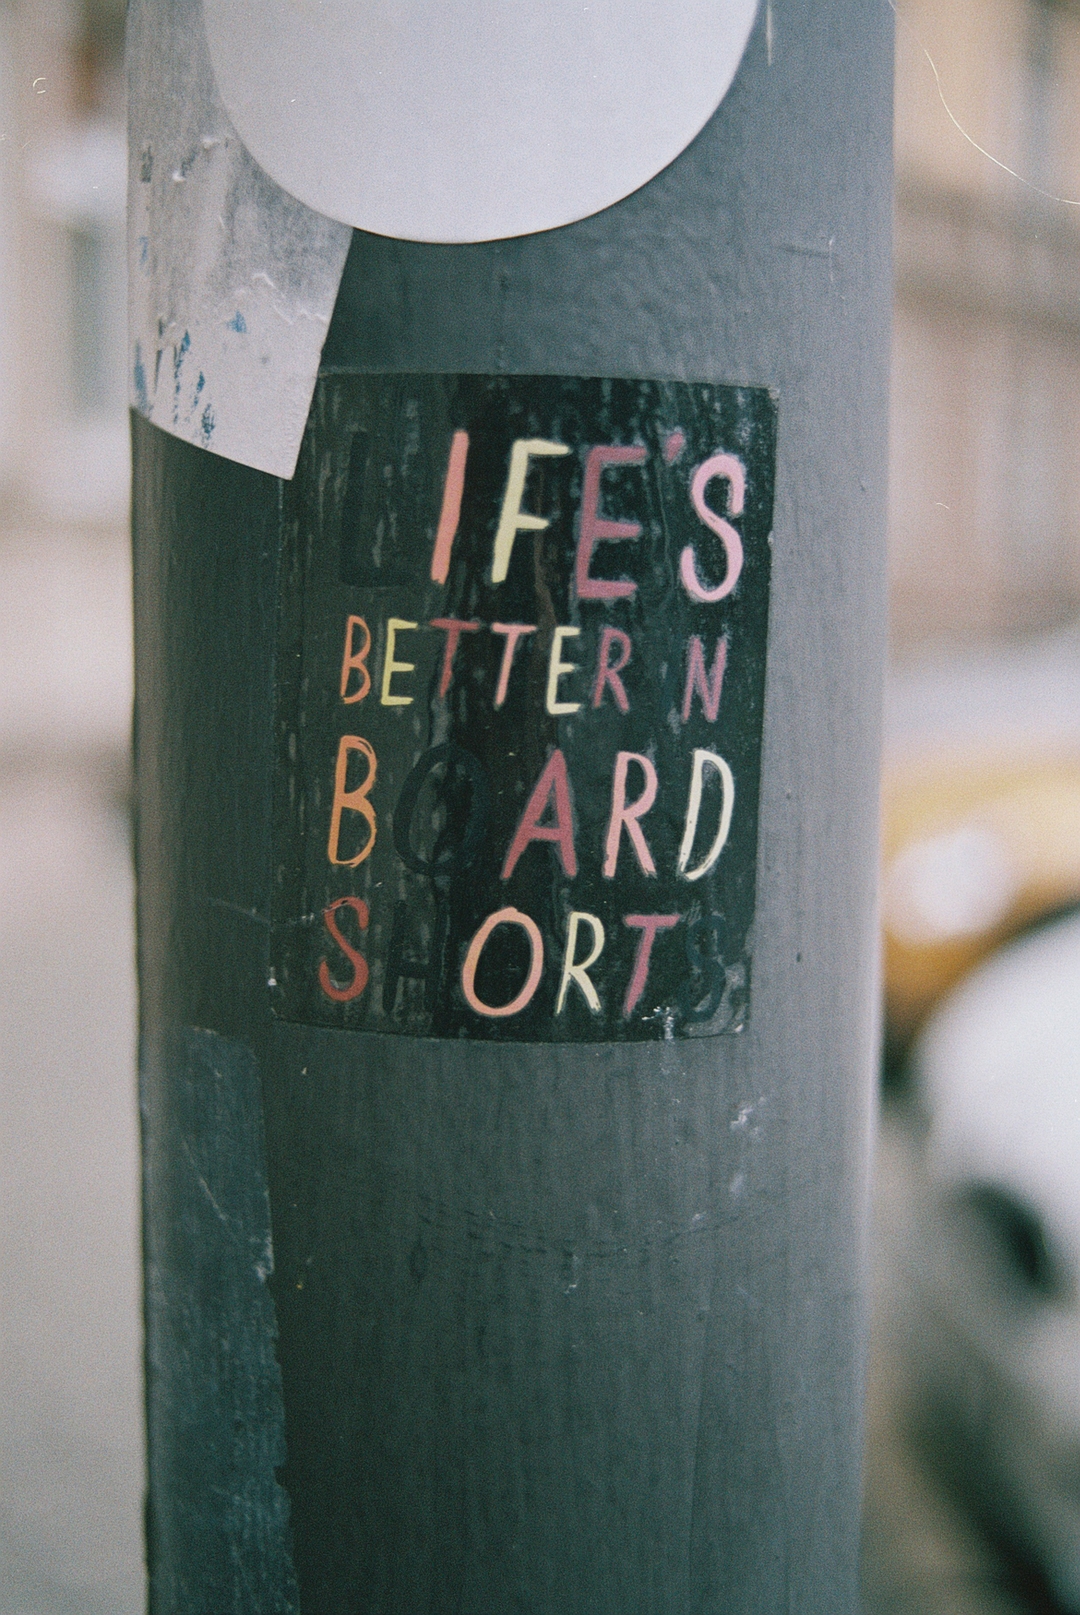 LIFE'S
BETTER N
BOARD
SHORTS